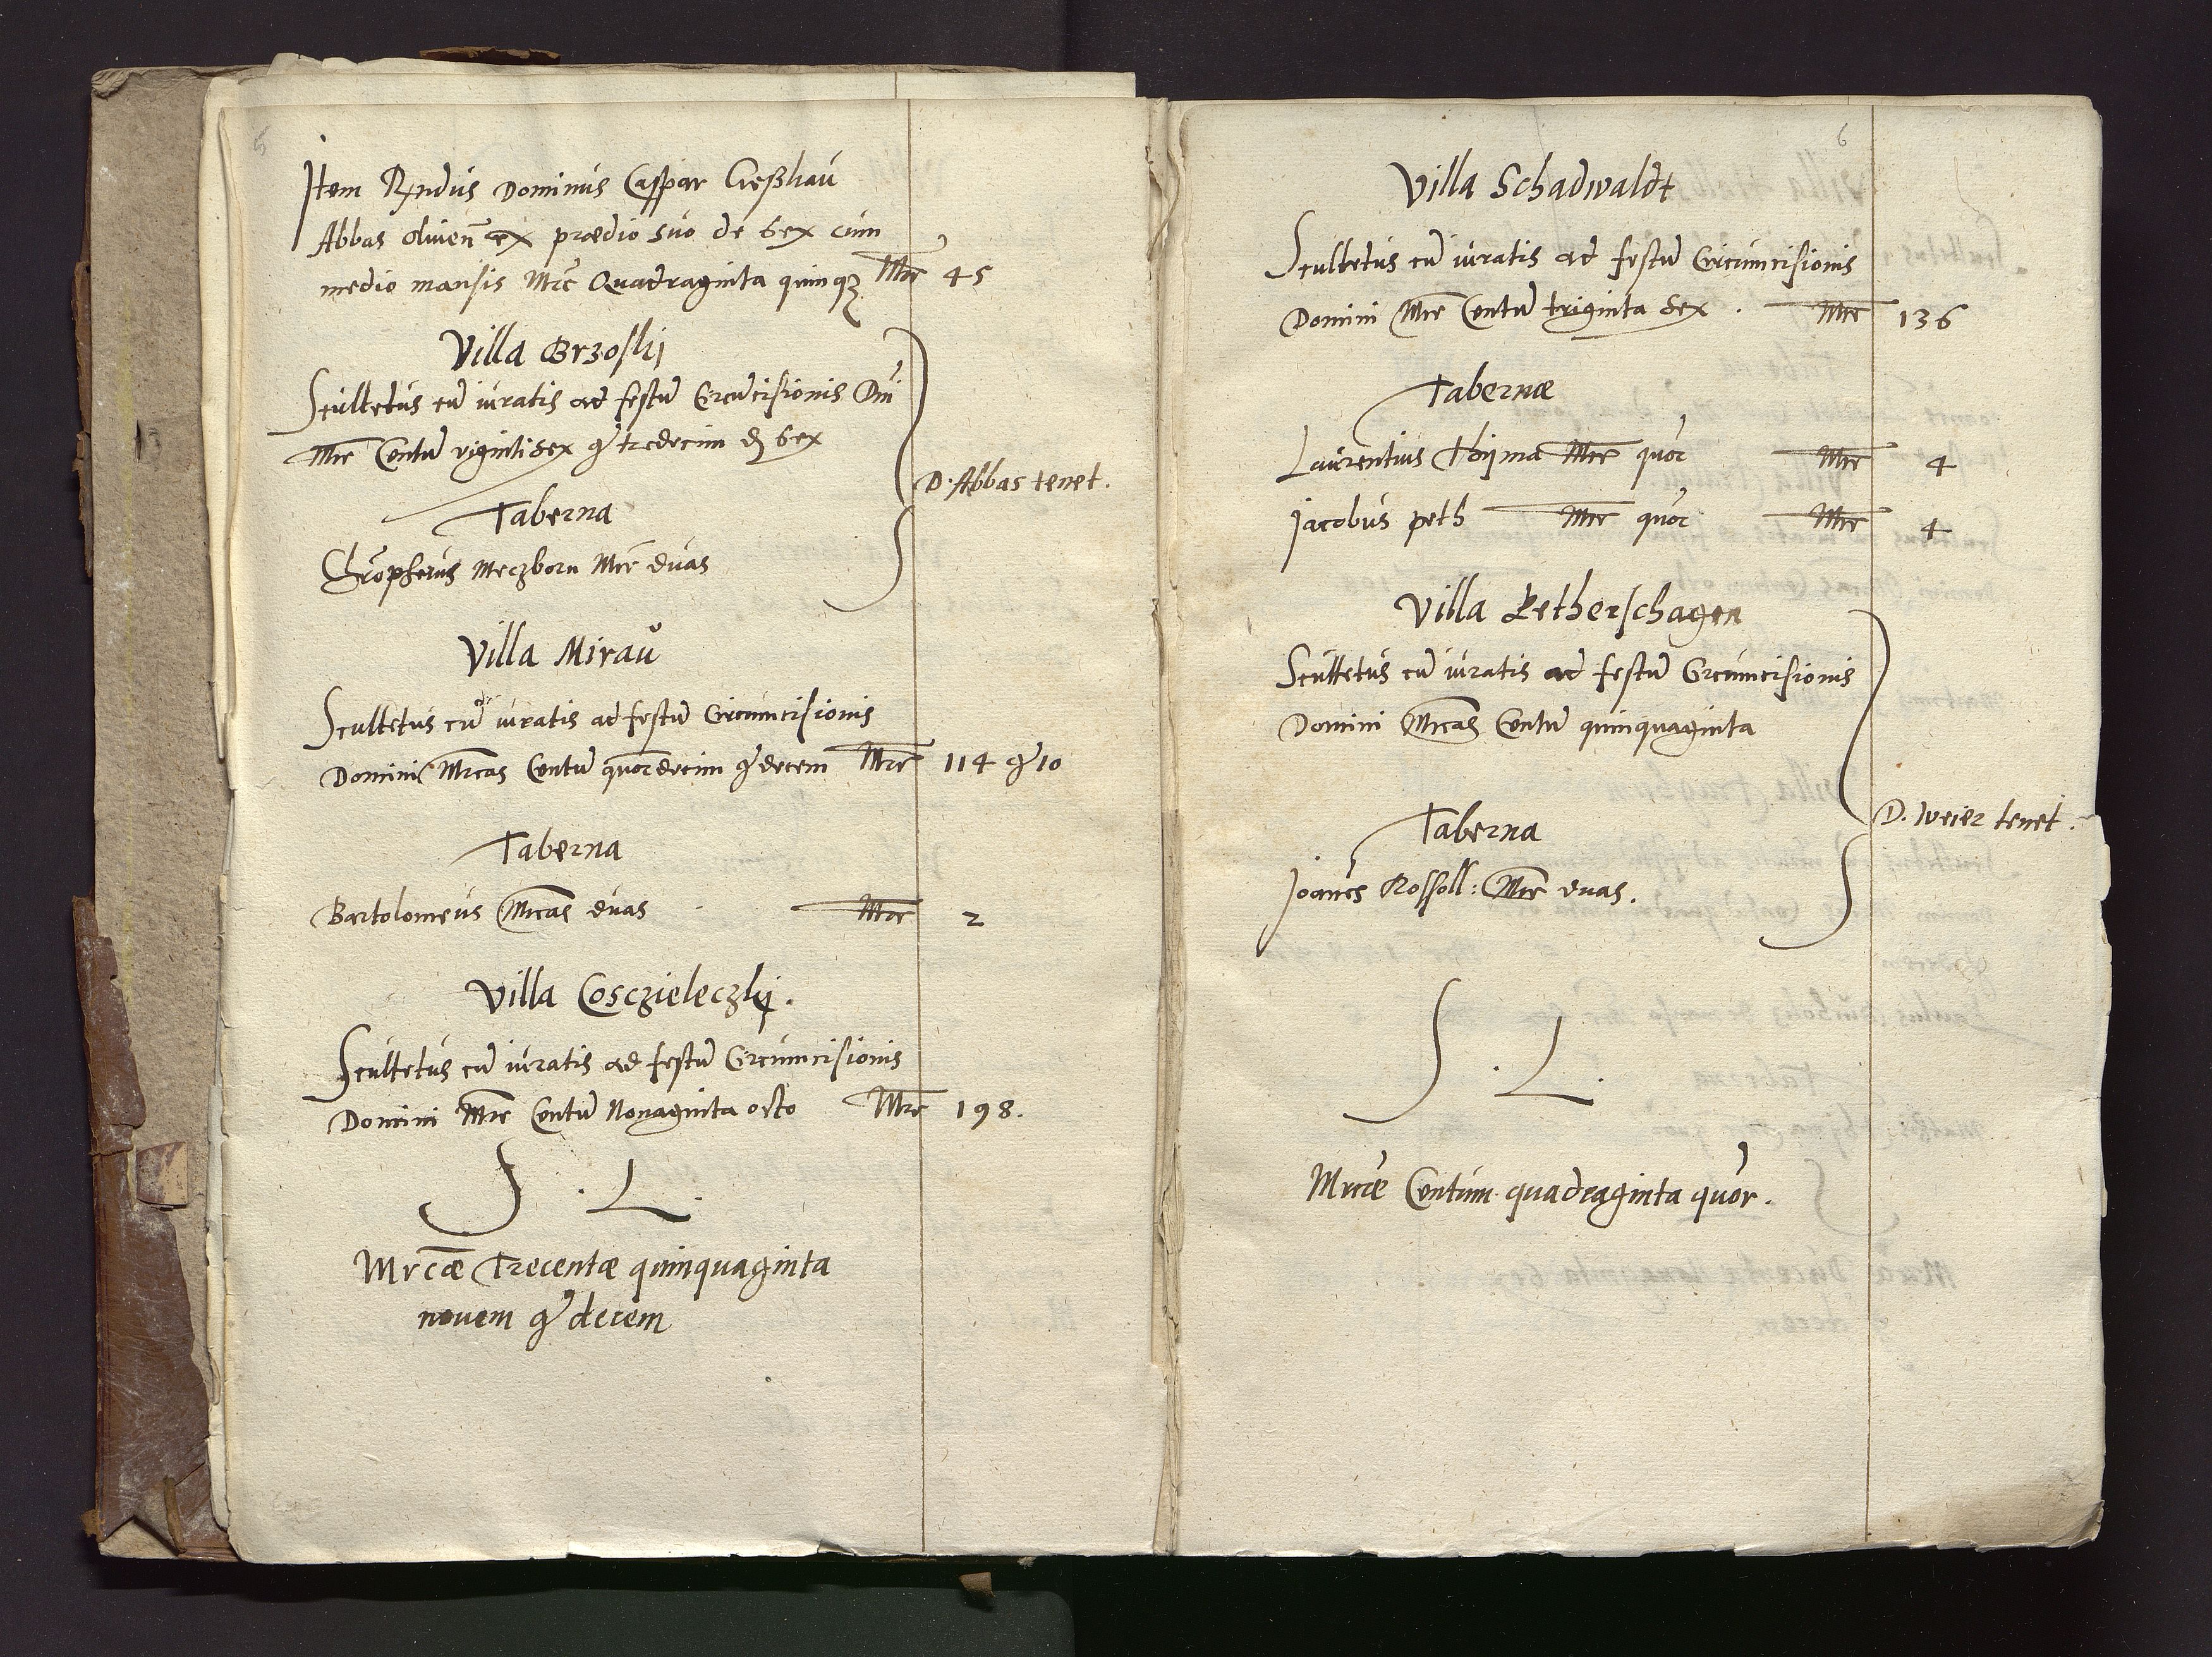 5
Item Rndus Dominus Caspar Geshau
Abbas oliuen ex prædio suo de sex cum
medio mansis Mrc Quadraginta quinqꝫ Mrc 45
Villa Brzoski
Scultetus cu iuratis ad festu Circucisionis Dni
Mrc Centu vigintisex g tredecim d sex
D. Abbas tenet.
Taberna
Chropherus Meczborn Mrc duas
Villa Mirau
Scultetus cu iuratis ad festu Circumcisionis
Domini Mrcas Centu quordecim g decem Mrc 114 g 10
Taberna
Bartolomeus Mrcas duas Mrc 2
Villa Cosczieleczkij.
Scultetus cu iuratis ad festu Circumcisionis
Domini Mrc Centu Nonaginta octo Mrc 198.
S . L .
Mrcæ Trecentæ quinquaginta
novem g decem
6
Villa Schadwaldt
Scultetus cu iuratis ad festu Circumcisionis
Domini Mrc Centu triginta sex . Mrc 136
Tabernæ
Laurentius Thijma Mrc quor Mrc 4
Jacobus peth Mrc quor Mrc 4
Villa Letherschagen
Scultetus cu iuratis ad festu Circumcisionis
Domini Mrcas Centu quinquaginta
D. Weier tenet.
Taberna
Joanes Rossoll: Mrc duas.
S . L .
Mrcæ Centum quadraginta quor.